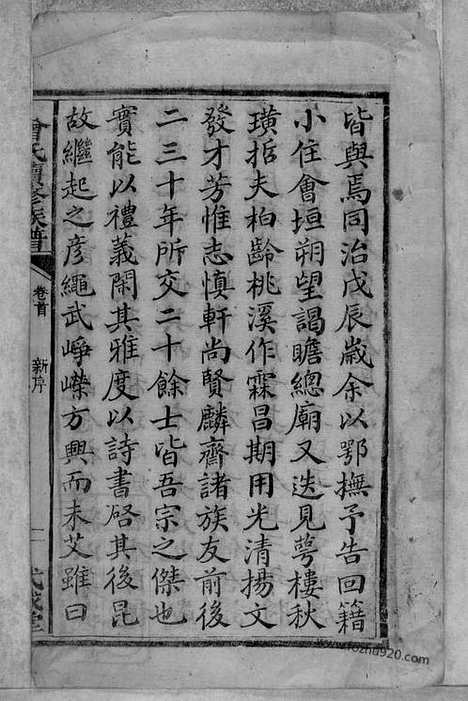 皆與焉同治戊辰歲余以鄂撫予告回籍
小住會垣朔望謁瞻總廟又迭見萼樓秋
璜哲夫柏齡桃溪作霖昌期用光清揚文
發才芳惟志慎軒尚賢麟齋諸族友前後
二三十年所交二十餘士皆吾宗之傑也
實能以禮義閑其雅度以詩書啓其後昆
故繼起之彥繩武崢嶸方興而未艾雖曰
曾氏續修族譜
卷首
新序
一
武城堂
www.fozhu920.com